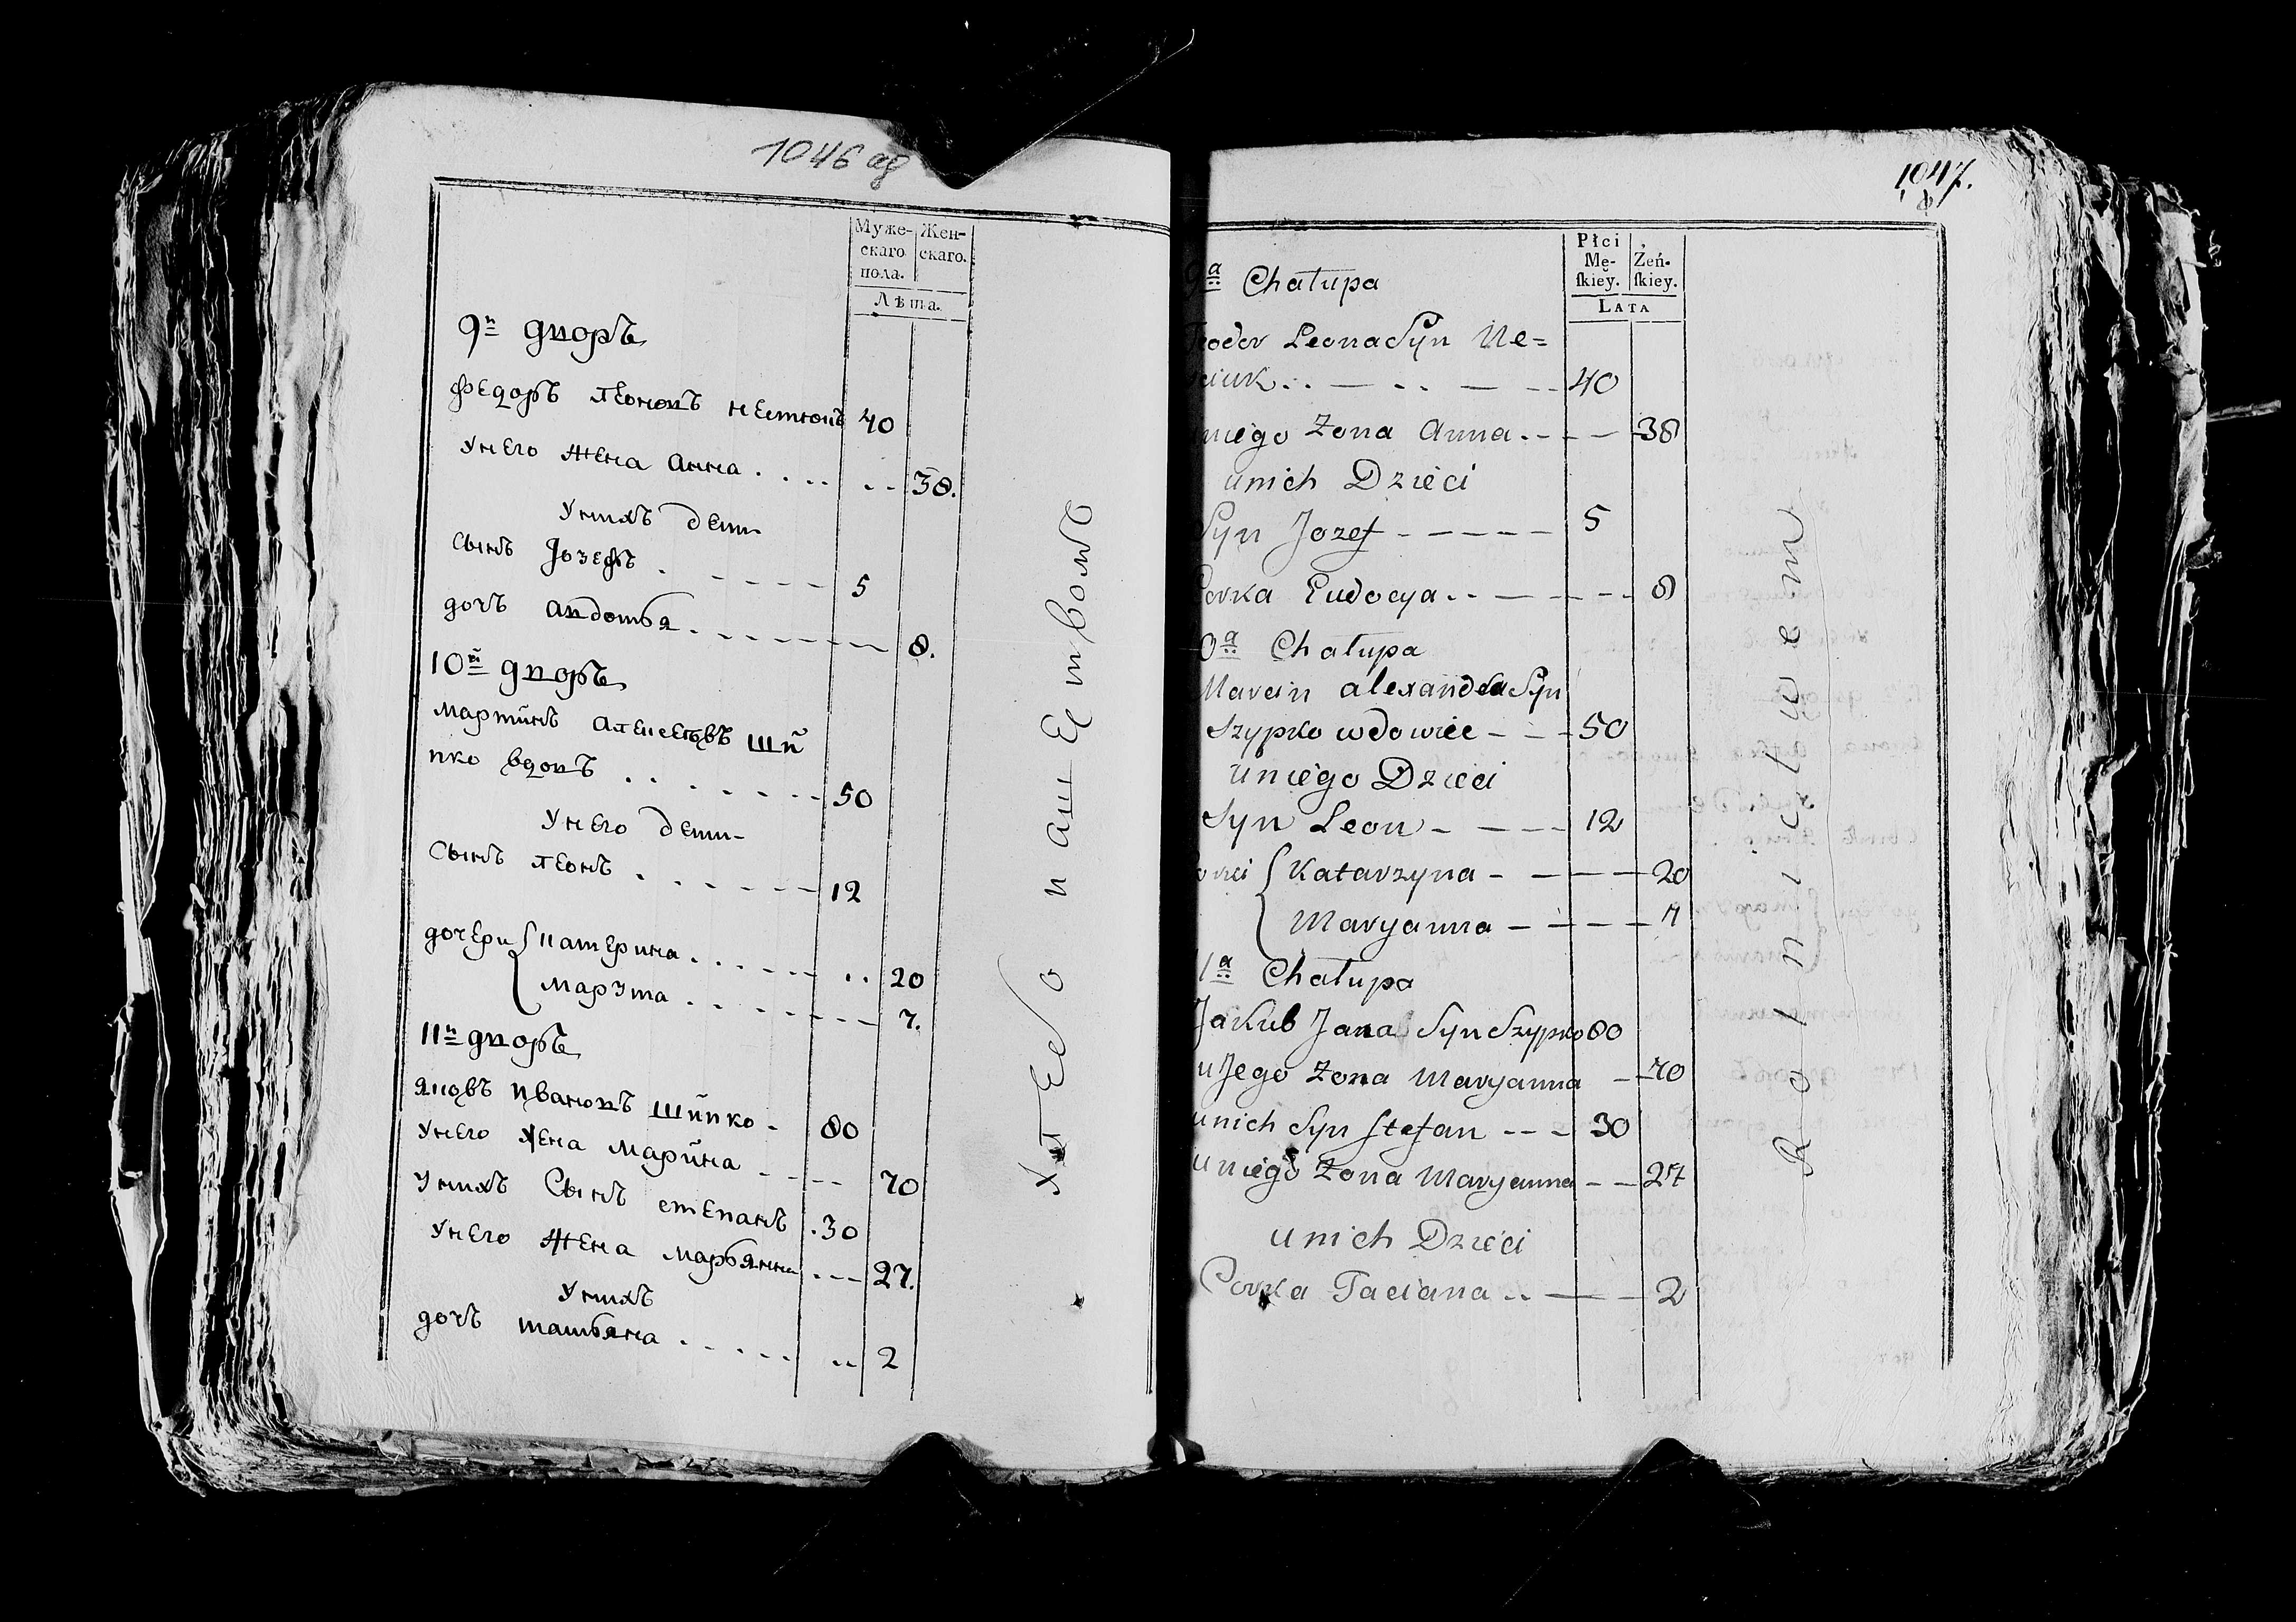 1046 об
Муже-
скаго
пола.
Жен-
скаго.
Лѣта.
9й дворъ
Федоръ Леоновъ
40
унего жена Анна
38.
унихъ дети
сынъ Іозефъ
5
дочь Авдотья
8.
10й дворъ
Мартинъ Алексеевъ Ши
пко вдовъ
50
унего дети
сынъ Леонъ
12
дочери Катерина
20
Марута
7.
11й дворъ
Яковъ Ивановъ Шипко
80
унего жена Марина
70
унихъ сынъ Степанъ
30
унего жена Марьянна
27.
унихъ
дочь Татьяна
2
Хлебопашествомъ
1047.
Płci
Mę-
ſkiey.
Żeń-
ſkiey.
LATA
9a Chałupa
Teodor Leona Syn Ne=
40
uniego Zona Anna
38
unich Dzieci
Syn Jozef
5
Corka Eudocya
8
0a Chałupa
Marcin alexandra Syn
Szypko wdowiec
50
uniego Dzieci
Syn Leon
12
Katarzyna
20
Maryanna
7
1a Chałupa
Jakub Jana Syn Szypko
80
uJego Zona Maryanna
70
unich Syn Stefan
30
uniego Zona Maryanna
27
unich Dzieci
Corka Taciana
2
Rolnictwem